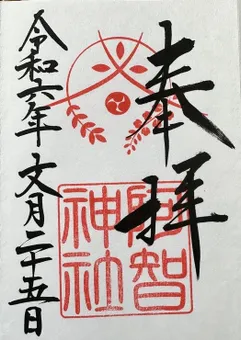 奉拝
阿智神社
令和六年文月二十五日